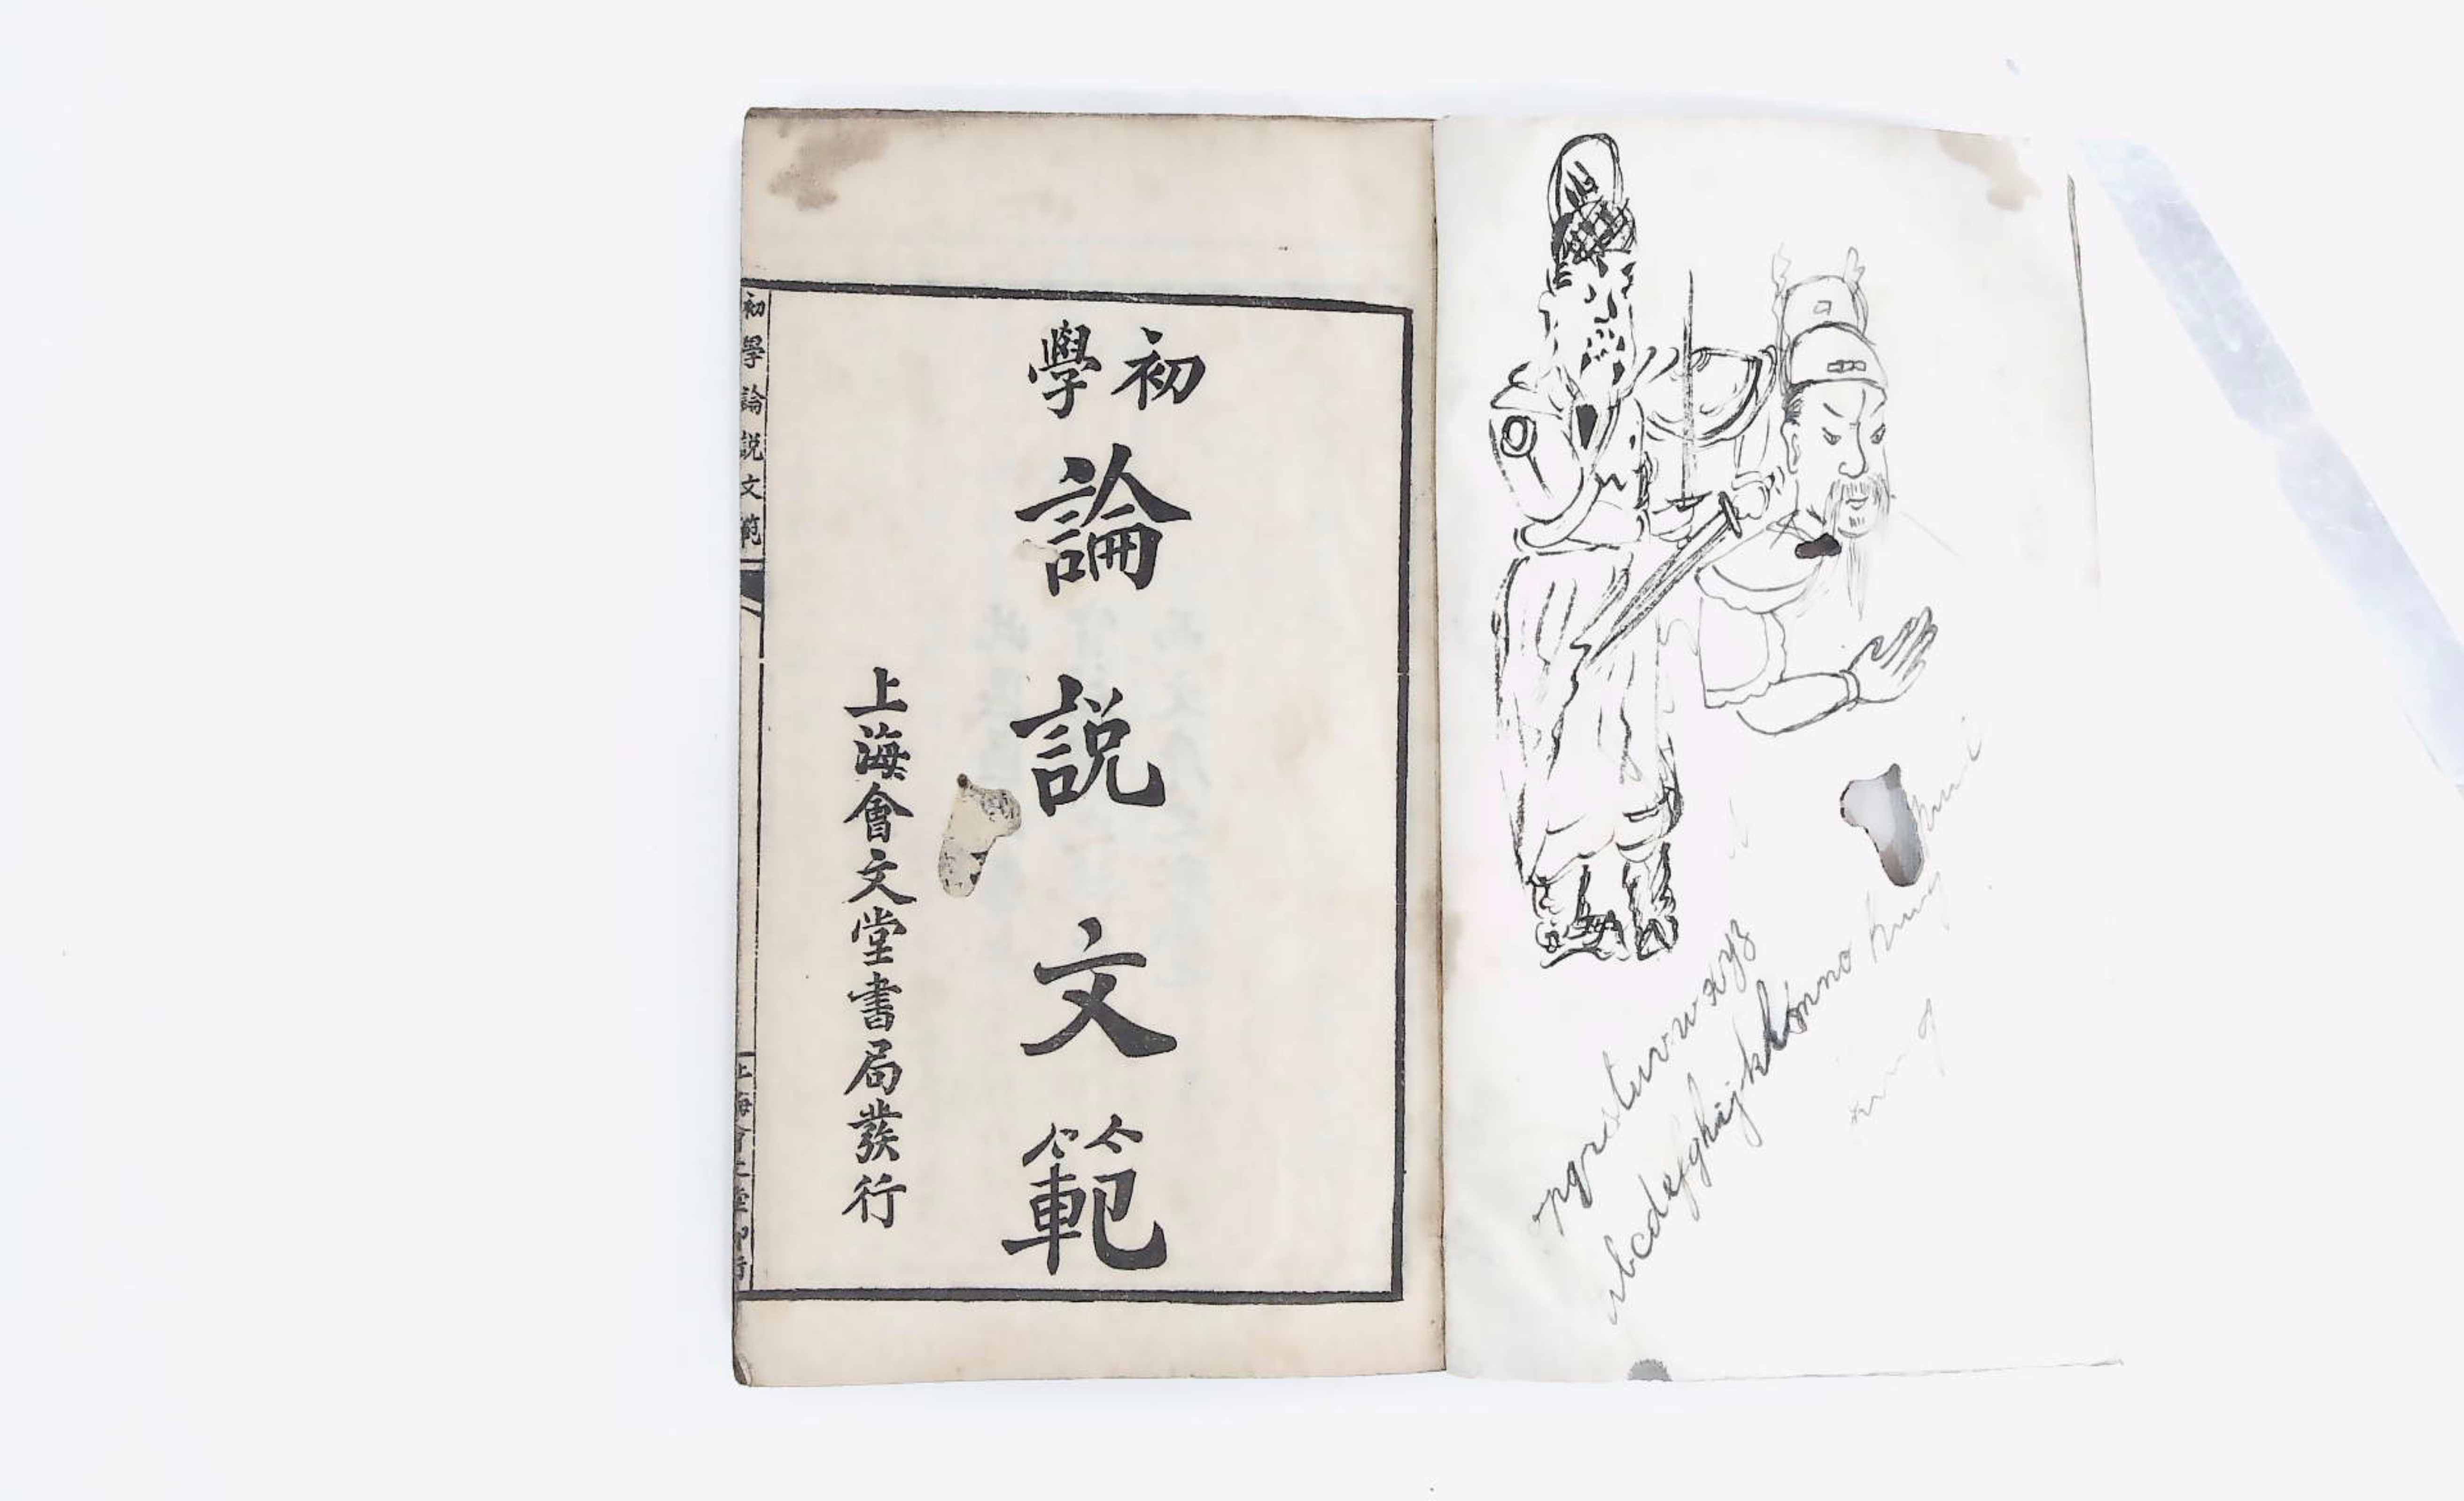 初學
論說文範
上海會文堂書局發行
初學論說文範
上海會文堂印行
opqrstuvwxyz
abcdefghijklmno